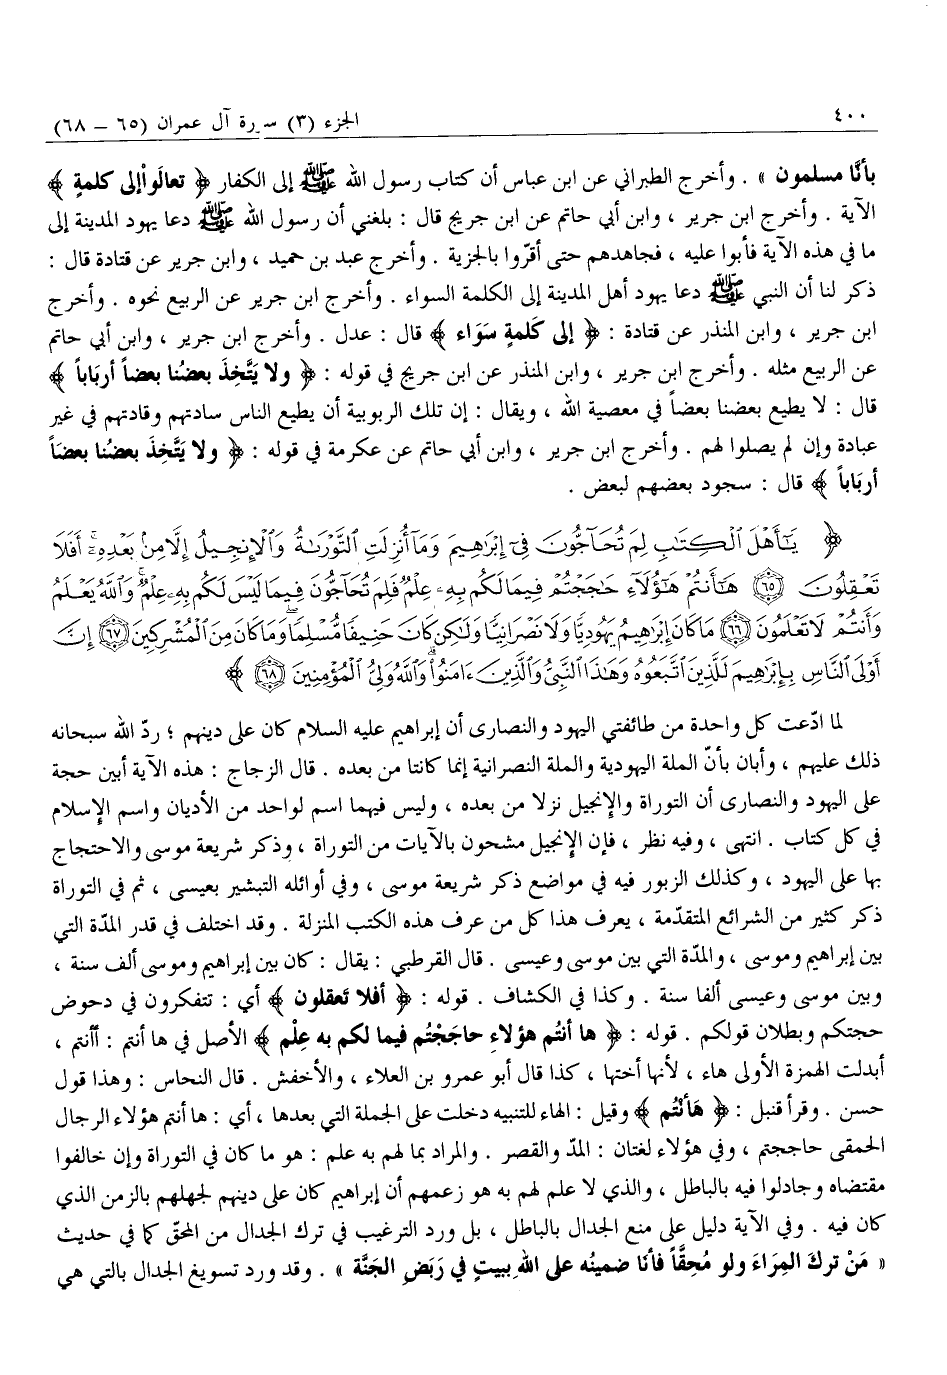 ٤٠٠
الجزء (٣) سورة آل عمران (٦٥ – ٦٨)
بأنَّا مسلمون » . وأخرج الطبراني عن ابن عباس أن كتاب رسول الله ﷺ إلى الكفار ﴿ تعالَواْ إلى كلمةٍ ﴾
الآية . وأخرج ابن جرير ، وابن أبي حاتم عن ابن جريج قال : بلغني أن رسول الله ﷺ دعا يهود المدينة إلى
ما في هذه الآية فأبوا عليه ، فجاهدهم حتى أقرّوا بالجزية . وأخرج عبد بن حميد ، وابن جرير عن قتادة قال :
ذكر لنا أن النبي ﷺ دعا يهود أهل المدينة إلى الكلمة السواء . وأخرج ابن جرير عن الربيع نحوه . وأخرج
ابن جرير ، وابن المنذر عن قتادة : ﴿ إلى كَلمةٍ سَوَاء ﴾ قال : عدل . وأخرج ابن جرير ، وابن أبي حاتم
عن الربيع مثله . وأخرج ابن جرير ، وابن المنذر عن ابن جريج في قوله : ﴿ ولا يَتَّخذَ بعضُنا بعضاً أربَاباً ﴾
قال : لا يطيع بعضنا بعضاً في معصية الله ، ويقال : إن تلك الربوبية أن يطيع الناس سادتهم وقادتهم في غير
عبادة وإن لم يصلوا لهم . وأخرج ابن جرير ، وابن أبي حاتم عن عكرمة في قوله : ﴿ ولا يَتَّخِذَ بعضُنا بعضَاً
أربَاباً ﴾ قال : سجود بعضهم لبعض .
﴿ يَٰٓأَهْلَ ٱلْكِتَٰبِ لِمَ تُحَآجُّونَ فِىٓ إِبْرَٰهِيمَ وَمَآ أُنزِلَتِ ٱلتَّوْرَىٰةُ وَٱلْإِنجِيلُ إِلَّا مِنۢ بَعْدِهِۦٓ ۚ أَفَلَا
تَعْقِلُونَ ٦٥ هَٰٓأَنتُمْ هَٰٓؤُلَآءِ حَٰجَجْتُمْ فِيمَا لَكُم بِهِۦ عِلْمٌ فَلِمَ تُحَآجُّونَ فِيمَا لَيْسَ لَكُم بِهِۦ عِلْمٌ ۚ وَٱللَّهُ يَعْلَمُ
وَأَنتُمْ لَا تَعْلَمُونَ ٦٦ مَا كَانَ إِبْرَٰهِيمُ يَهُودِيًّا وَلَا نَصْرَانِيًّا وَلَٰكِن كَانَ حَنِيفًا مُّسْلِمًا وَمَا كَانَ مِنَ ٱلْمُشْرِكِينَ ٦٧ إِنَّ
أَوْلَى ٱلنَّاسِ بِإِبْرَٰهِيمَ لَلَّذِينَ ٱتَّبَعُوهُ وَهَٰذَا ٱلنَّبِىُّ وَٱلَّذِينَ ءَامَنُوا۟ ۗ وَٱللَّهُ وَلِىُّ ٱلْمُؤْمِنِينَ ٦٨ ﴾
لما ادّعت كل واحدة من طائفتي اليهود والنصارى أن إبراهيم عليه السلام كان على دينهم ؛ ردّ الله سبحانه
ذلك عليهم ، وأبان بأنّ الملة اليهودية والملة النصرانية إنما كانتا من بعده . قال الزجاج : هذه الآية أبين حجة
على اليهود والنصارى أن التوراة والإنجيل نزلا من بعده ، وليس فيهما اسم لواحد من الأديان واسم الإسلام
في كل كتاب . انتهى ، وفيه نظر ، فإن الإنجيل مشحون بالآيات من التوراة ، وذكر شريعة موسى والاحتجاج
بها على اليهود ، وكذلك الزبور فيه في مواضع ذكر شريعة موسى ، وفي أوائله التبشير بعيسى ، ثم في التوراة
ذكر كثير من الشرائع المتقدّمة ، يعرف هذا كل من عرف هذه الكتب المنزلة . وقد اختلف في قدر المدّة التي
بين إبراهيم وموسى ، والمدّة التي بين موسى وعيسى . قال القرطبي : يقال : كان بين إبراهيم وموسى ألف سنة ،
وبين موسى وعيسى ألفا سنة . وكذا في الكشاف . قوله : ﴿ أفلا تَعقلون ﴾ أي : تتفكرون في دحوض
حجتكم وبطلان قولكم . قوله : ﴿ ها أنتُم هؤلاءِ حاجَجْتُم فيما لكم به عِلْم ﴾ الأصل في ها أنتم : أأنتم ،
أبدلت الهمزة الأولى هاء ، لأنها أختها ، كذا قال أبو عمرو بن العلاء ، والأخفش . قال النحاس : وهذا قول
حسن . وقرأ قنبل : ﴿ هَأنْتُم ﴾ وقيل : الهاء للتنبيه دخلت على الجملة التي بعدها ، أي : ها أنتم هؤلاء الرجال
الحمقى حاججتم ، وفي هؤلاء لغتان : المدّ والقصر . والمراد بما لهم به علم : هو ما كان في التوراة وإن خالفوا
مقتضاه وجادلوا فيه بالباطل ، والذي لا علم لهم به هو زعمهم أن إبراهيم كان على دينهم لجهلهم بالزمن الذي
كان فيه . وفي الآية دليل على منع الجدال بالباطل ، بل ورد الترغيب في ترك الجدال من المحقّ كما في حديث
« مَنْ تركَ المِرَاءَ ولو مُحِقَّاً فأنَا ضمينُه على الله ببيتٍ في رَبَضِ الجَنَّة » . وقد ورد تسويغ الجدال بالتي هي